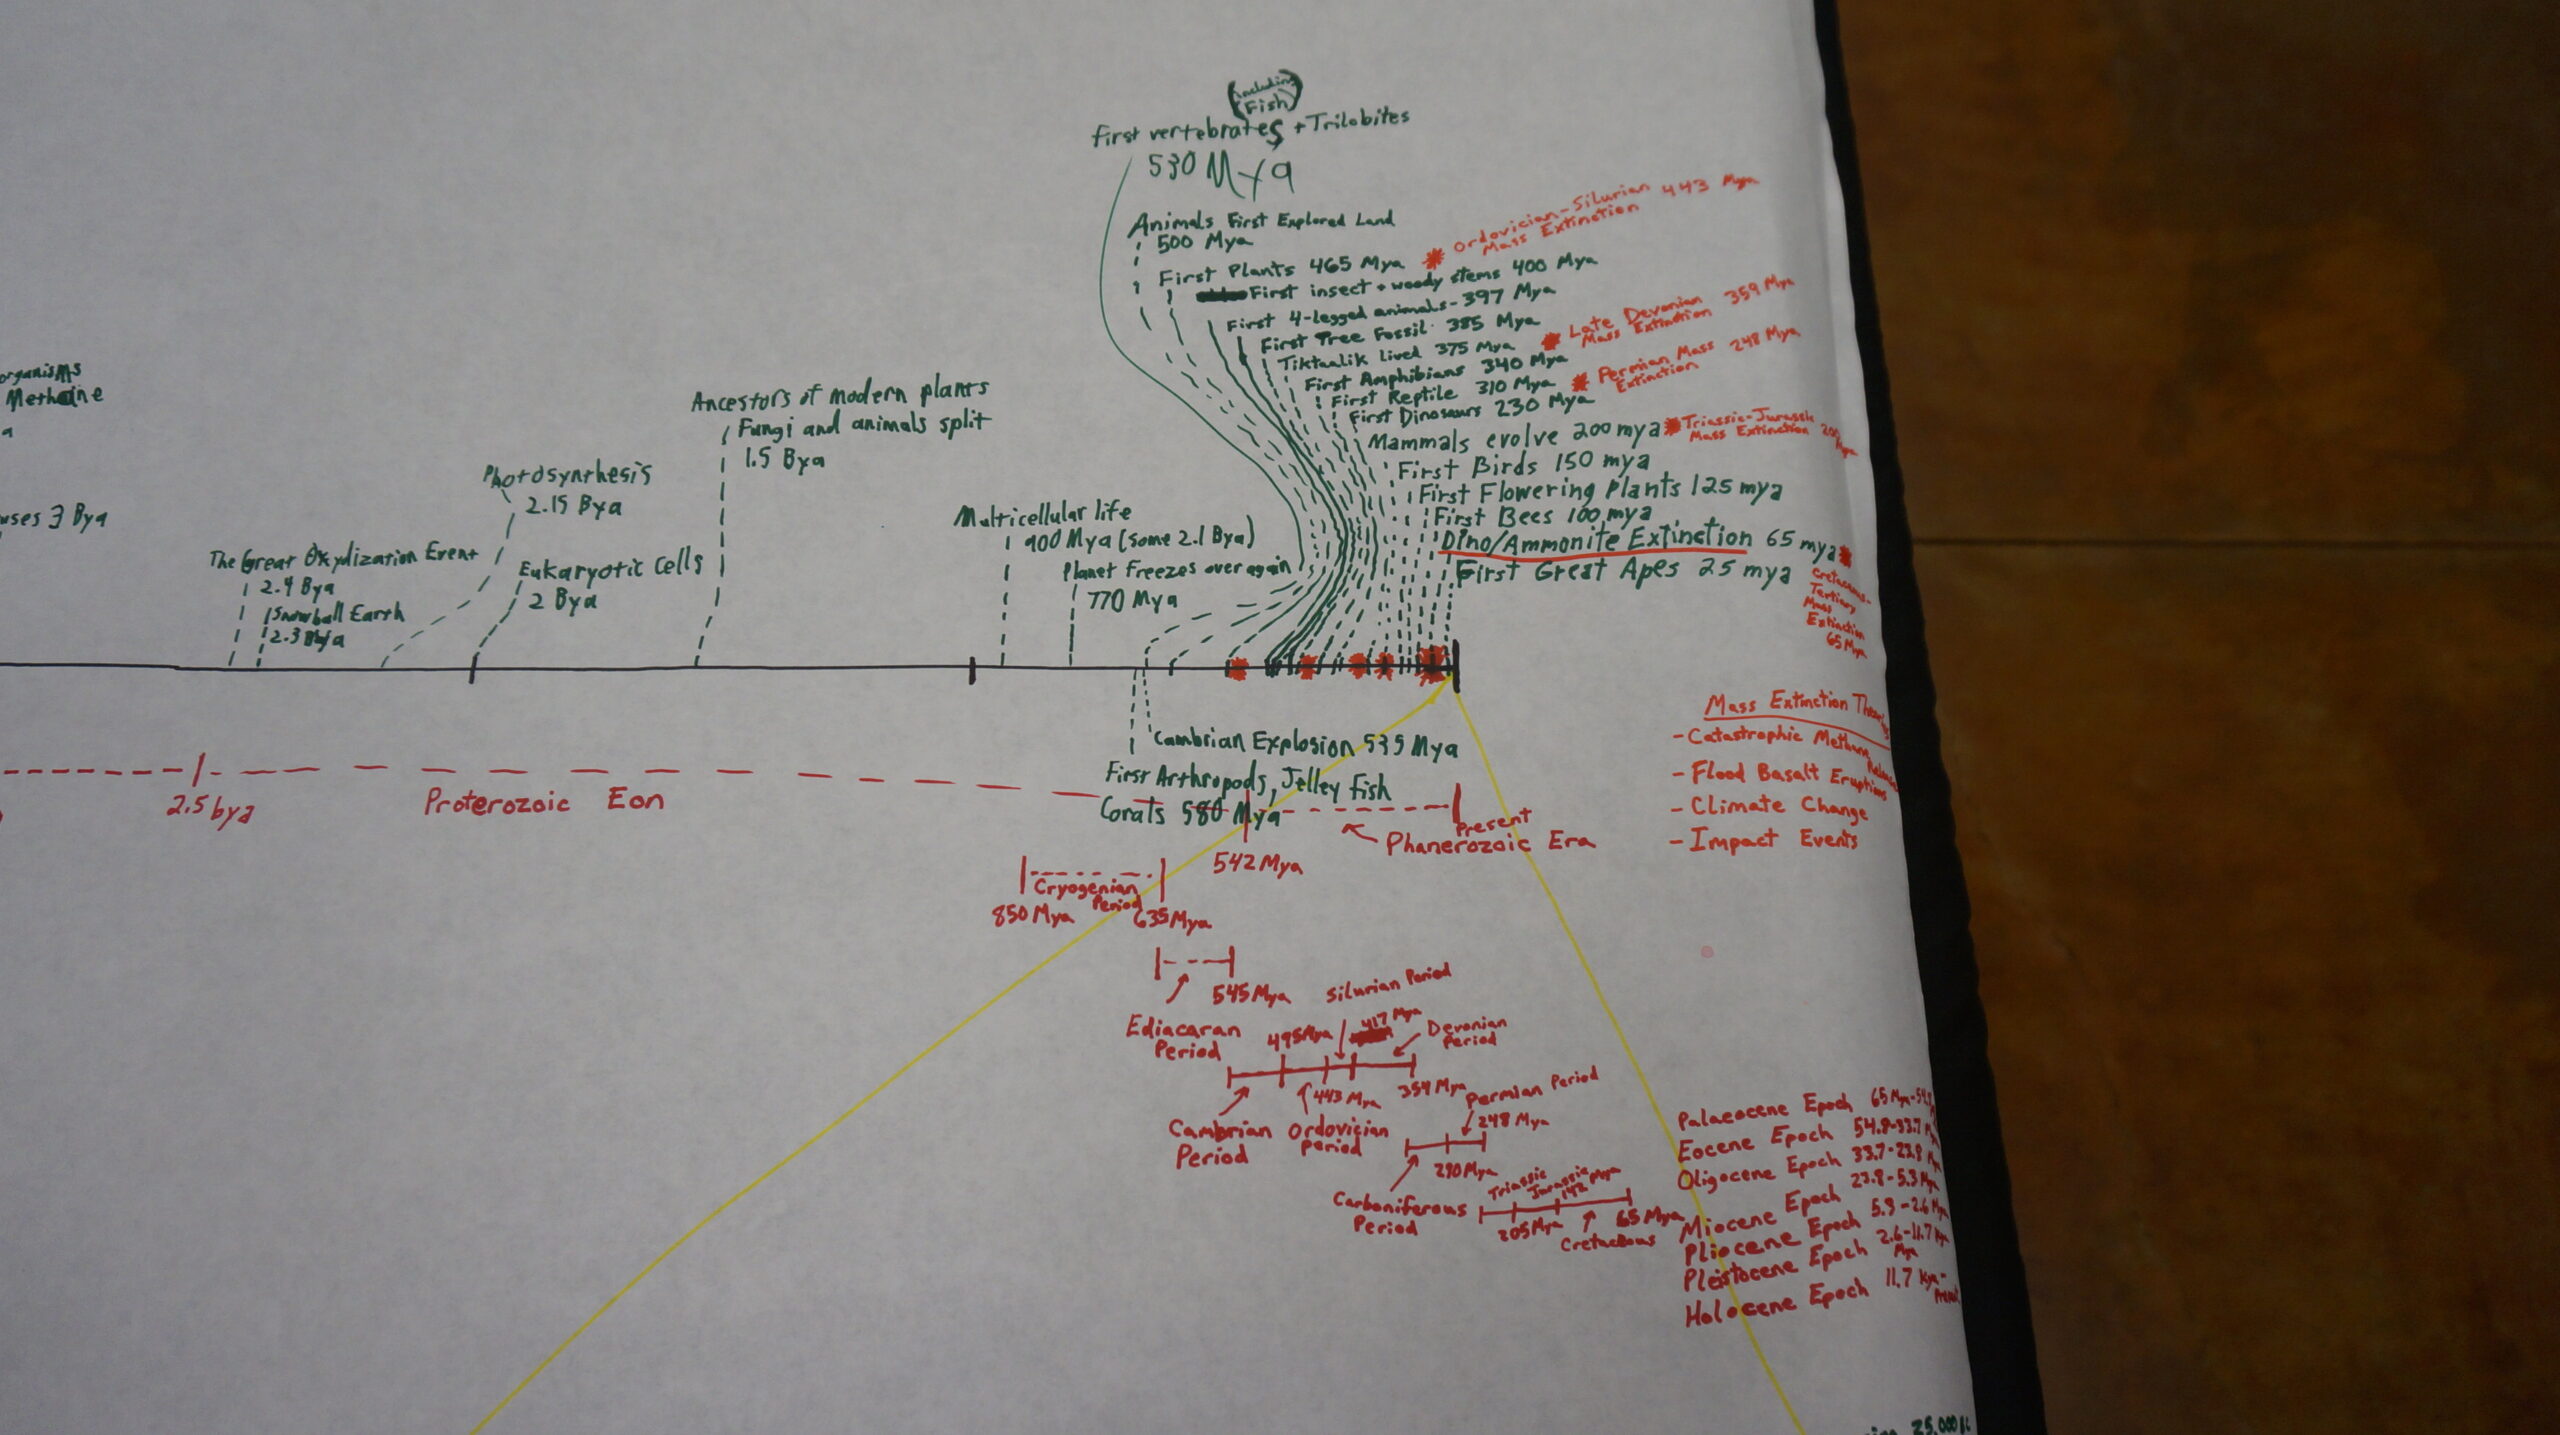 (including
Fish)
First vertebrates + Trilobites
530 Mya
Animals First Explored Land
500 Mya
First Plants 465 Mya
Ordovician-Silurian 443 Mya
Mass Extinction
First insect + woody stems 400 Mya
First 4-legged animals - 397 Mya
First Tree Fossil 385 Mya
Tiktaalik lived 375 Mya
Late Devonian 359 Mya
Mass Extinction
First Amphibians 340 Mya
First Reptile 310 Mya
Permian Mass 248 Mya
Extinction
First Dinosaurs 230 Mya
Mammals evolve 200 mya
Triassic-Jurassic
Mass Extinction
First Birds 150 mya
First Flowering Plants 125 mya
First Bees 100 mya
Dino/Ammonite Extinction 65 mya
First Great Apes 25 mya
Cretaceous-
Tertiary
Mass
Extinction
65 Mya
organisms
Methane
a
3 Bya
The Great Oxydization Event
2.4 Bya
Snowball Earth
2.3 Bya
Photosynthesis
2.15 Bya
Eukaryotic Cells
2 Bya
Ancestors of modern plants
Fungi and animals split
1.5 Bya
Multicellular life
900 Mya (some 2.1 Bya)
Planet Freezes over again
770 Mya
Cambrian Explosion 535 Mya
First Arthropods, Jelley Fish
Corals 580 Mya
2.5 bya
Proterozoic Eon
Present
Phanerozoic Era
542 Mya
Cryogenian
Period
850 Mya
635 Mya
545 Mya
Ediacaran
Period
Silurian Period
495 Mya
417 Mya
Devonian
Period
443 Mya
354 Mya
Cambrian
Period
Ordovician
Period
Permian Period
248 Mya
290 Mya
Carboniferous
Period
Triassic
Jurassic
142 Mya
205 Mya
65 Mya
Cretaceous
Mass Extinction
- Catastrophic Methane Release
- Flood Basalt Eruptions
- Climate Change
- Impact Events
Palaeocene Epoch 65 Mya-
Eocene Epoch 54.8-33.7
Oligocene Epoch 33.7-23.8
Miocene Epoch 23.8-5.3 Mya
Pliocene Epoch 5.3-2.6 Mya
Pleistocene Epoch 2.6-11.7
Mya
Holocene Epoch 11.7 Kya-
Present
25,000